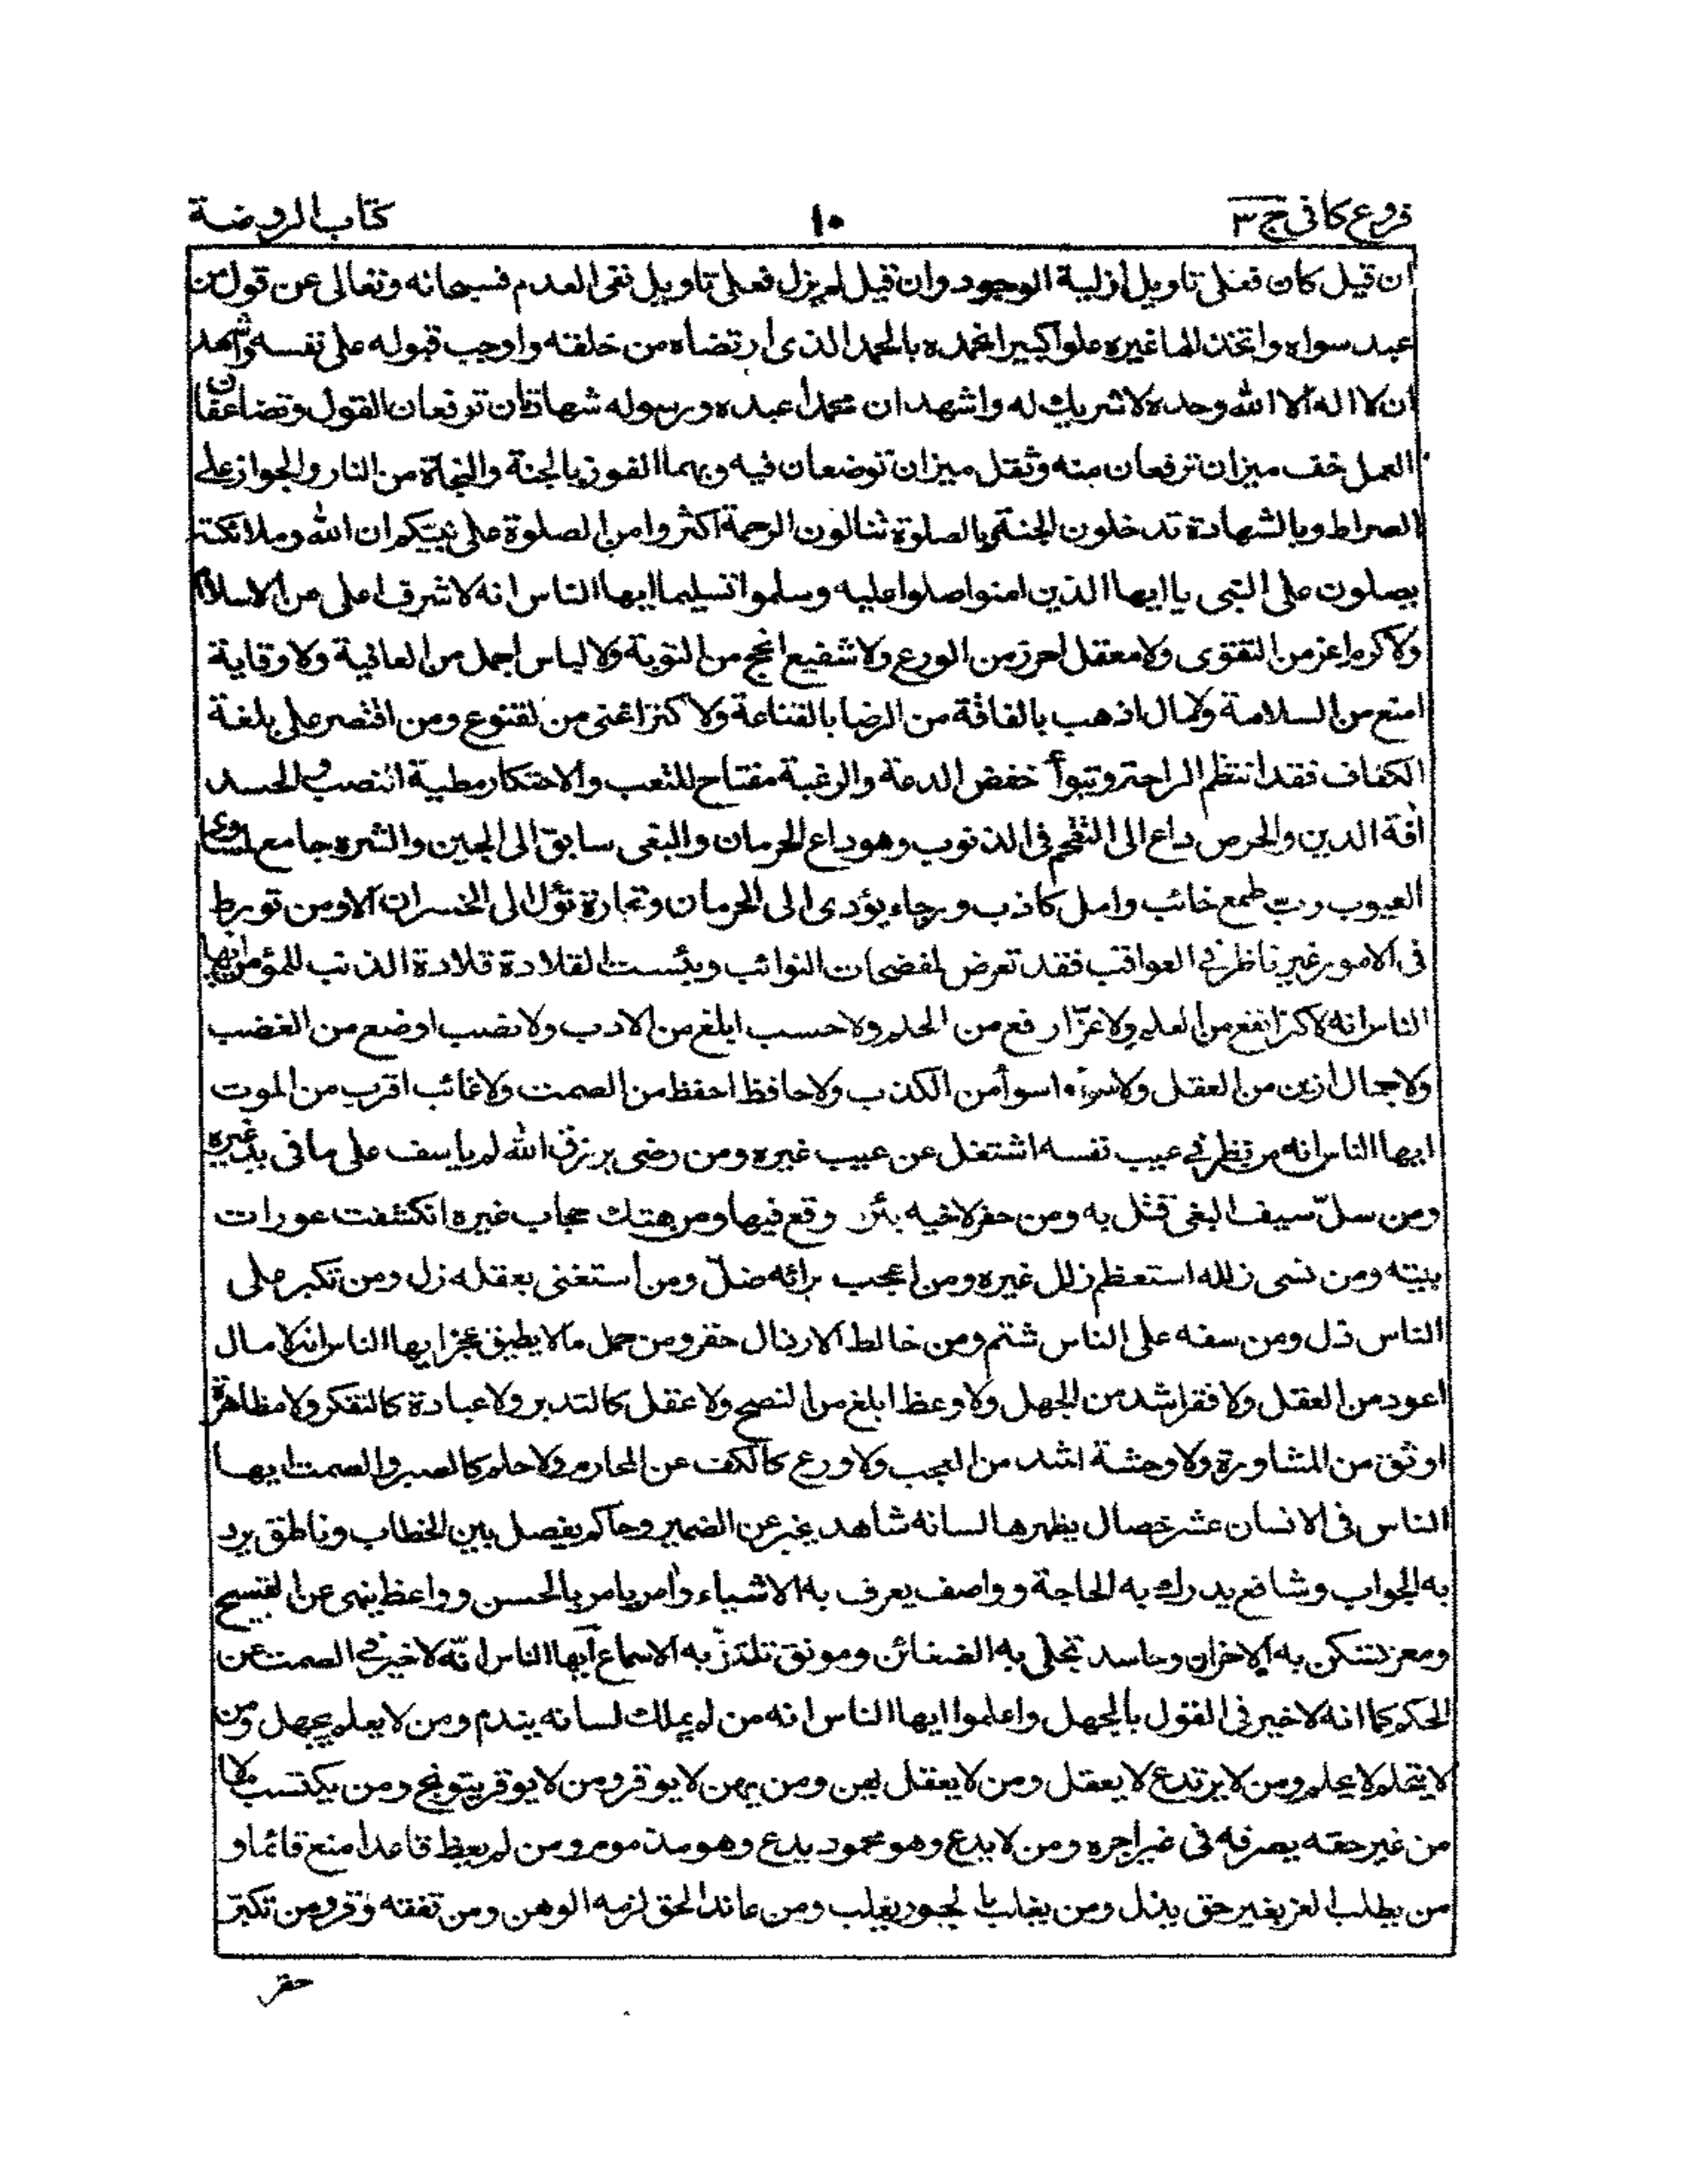 فروع كافى ج ٣
١٠
كتاب الروضة
ان قيل كان فعلى تاويل ازلية الوجود وان قيل لم يزل فعلى تاويل نفى العدم فسبحانه وتعالى عن قول من
عبد سواه واتخذ الها غيره علوا كبيرا نحمده بالحمد الذى ارتضاه من خلقه واوجب قبوله على نفسه واشهد
ان لا اله الا الله وحده لا شريك له واشهد ان محمدا عبده ورسوله شهادتان ترفعان القول وتضاعفان
العمل خف ميزان ترفعان منه وثقل ميزان توضعان فيه وبهما الفوز بالجنة والنجاة من النار والجواز على
الصراط وبالشهادة تدخلون الجنة وبالصلوة تنالون الرحمة اكثروا من الصلوة على نبيكم ان الله وملائكته
يصلون على النبى يا ايها الذين امنوا صلوا عليه وسلموا تسليما ايها الناس انه لا شرف اعلى من الاسلام
ولا كرم اعز من التقوى ولا معقل احرز من الورع ولا شفيع انجح من التوبة ولا لباس اجمل من العافية ولا وقاية
امنع من السلامة ولا مال اذهب بالفاقة من الرضا بالقناعة ولا كنز اغنى من القنوع ومن اقتصر على بلغة
الكفاف فقد انتظم الراحة وتبوأ خفض الدعة والرغبة مفتاح التعب والاحتكار مطية النصب والحسد
افة الدين والحرص داع الى التقحم فى الذنوب وهو داع الحرمان والبغى سابق الى الحين والشره جامع لمساوى
العيوب رب طمع خائب وامل كاذب ورجاء يؤدى الى الحرمان وتجارة تؤل الى الخسران الا ومن تورط
فى الامور غير ناظر فى العواقب فقد تعرض لمفضحات النوائب وبئست القلادة قلادة الذنب للمؤمن ايها
الناس انه لا كنز انفع من العلم ولا عزّ ارفع من الحلم ولا حسب ابلغ من الادب ولا نصب اوضع من الغضب
ولا جمال ازين من العقل ولا سوءة اسوأ من الكذب ولا حافظ احفظ من الصمت ولا غائب اقرب من الموت
ايها الناس انه من نظر فى عيب نفسه اشتغل عن عيب غيره ومن رضى برزق الله لم ياسف على ما فى يد غيره
ومن سلّ سيف البغى قتل به ومن حفر لاخيه بئرا وقع فيها ومن هتك حجاب غيره انكشفت عورات
بيته ومن نسى زلله استعظم زلل غيره ومن اعجب برائه ضلّ ومن استغنى بعقله زل ومن تكبر على
الناس ذل ومن سفه على الناس شتم ومن خالط الارذال حقر ومن حمل ما لا يطيق عجز ايها الناس انه لا مال
اعود من العقل ولا فقر اشد من الجهل ولا وعظ ابلغ من النصح ولا عقل كالتدبر ولا عبادة كالتفكر ولا مظاهرة
اوثق من المشاورة ولا وحشة اشد من العجب ولا ورع كالكف عن المحارم ولا حلم كالصبر والصمت ايها
الناس فى الانسان عشر خصال يظهرها لسانه شاهد يخبر عن الضمير وحاكم يفصل بين الخطاب وناطق يرد
به الجواب وشافع يدرك به الحاجة وواصف يعرف به الاشياء وامر يامر بالحسن وواعظ ينهى عن القبيح
ومعز تسكن به الاحزان وحاسد تجلى به الضغائن ومونق تلتذّ به الاسماع ايها الناس انّه لا خير فى الصمت عن
الحكم كما انه لا خير فى القول بالجهل واعلموا ايها الناس انه من لم يملك لسانه يندم ومن لا يعلم يجهل ومن
لا يتحلم لا يحلم ومن لا يرتدع لا يعقل ومن لا يعقل يهن ومن يهن لا يوقر ومن لا يوقر يتوبخ ومن يكتسب مالا
من غير حقه يصرفه فى غير اجره ومن لا يدع وهو محمود يدع وهو مذموم ومن لم يعط قاعدا منع قائما و
من يطلب العز بغير حق يذل ومن يغلب بالجور يغلب ومن عاند الحق لزمه الوهن ومن تفقه وقر ومن تكبّر
حقر